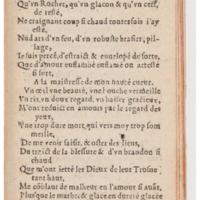 Qu'vn Rochet, qu'vn glaçon & qu'vn cerf,
de reste,
Ne craignant coup si chaud toutesfois i'ay
esté,
Nud ars d'vn feu, d'vn robuste brasier, pil-
lage,
Ie suis percé, d'estraict & enuelopé de sorte,
Que d'amour enflambé enlamé on attesté
si fort,
A la maistresse de mon nauré cueur.
VN œil vne beauté, vne bouche vermeille
Vn ris, vn doux regard, vn baiser gracieux,
M'ont reduict en amours par le regard des
yeux,
Vne trop dure mort, qui vers moy trop som
meille,
De me venir saisir, & oster des liens,
Du traict de la blessure & d'vn brandon si
chaud
Que m'ont ietté les Dieux de leur Trosne
tant haut,
Me cõblant de malheur en l'amour si aust,
Plus que marbre & glace en dureté glacée